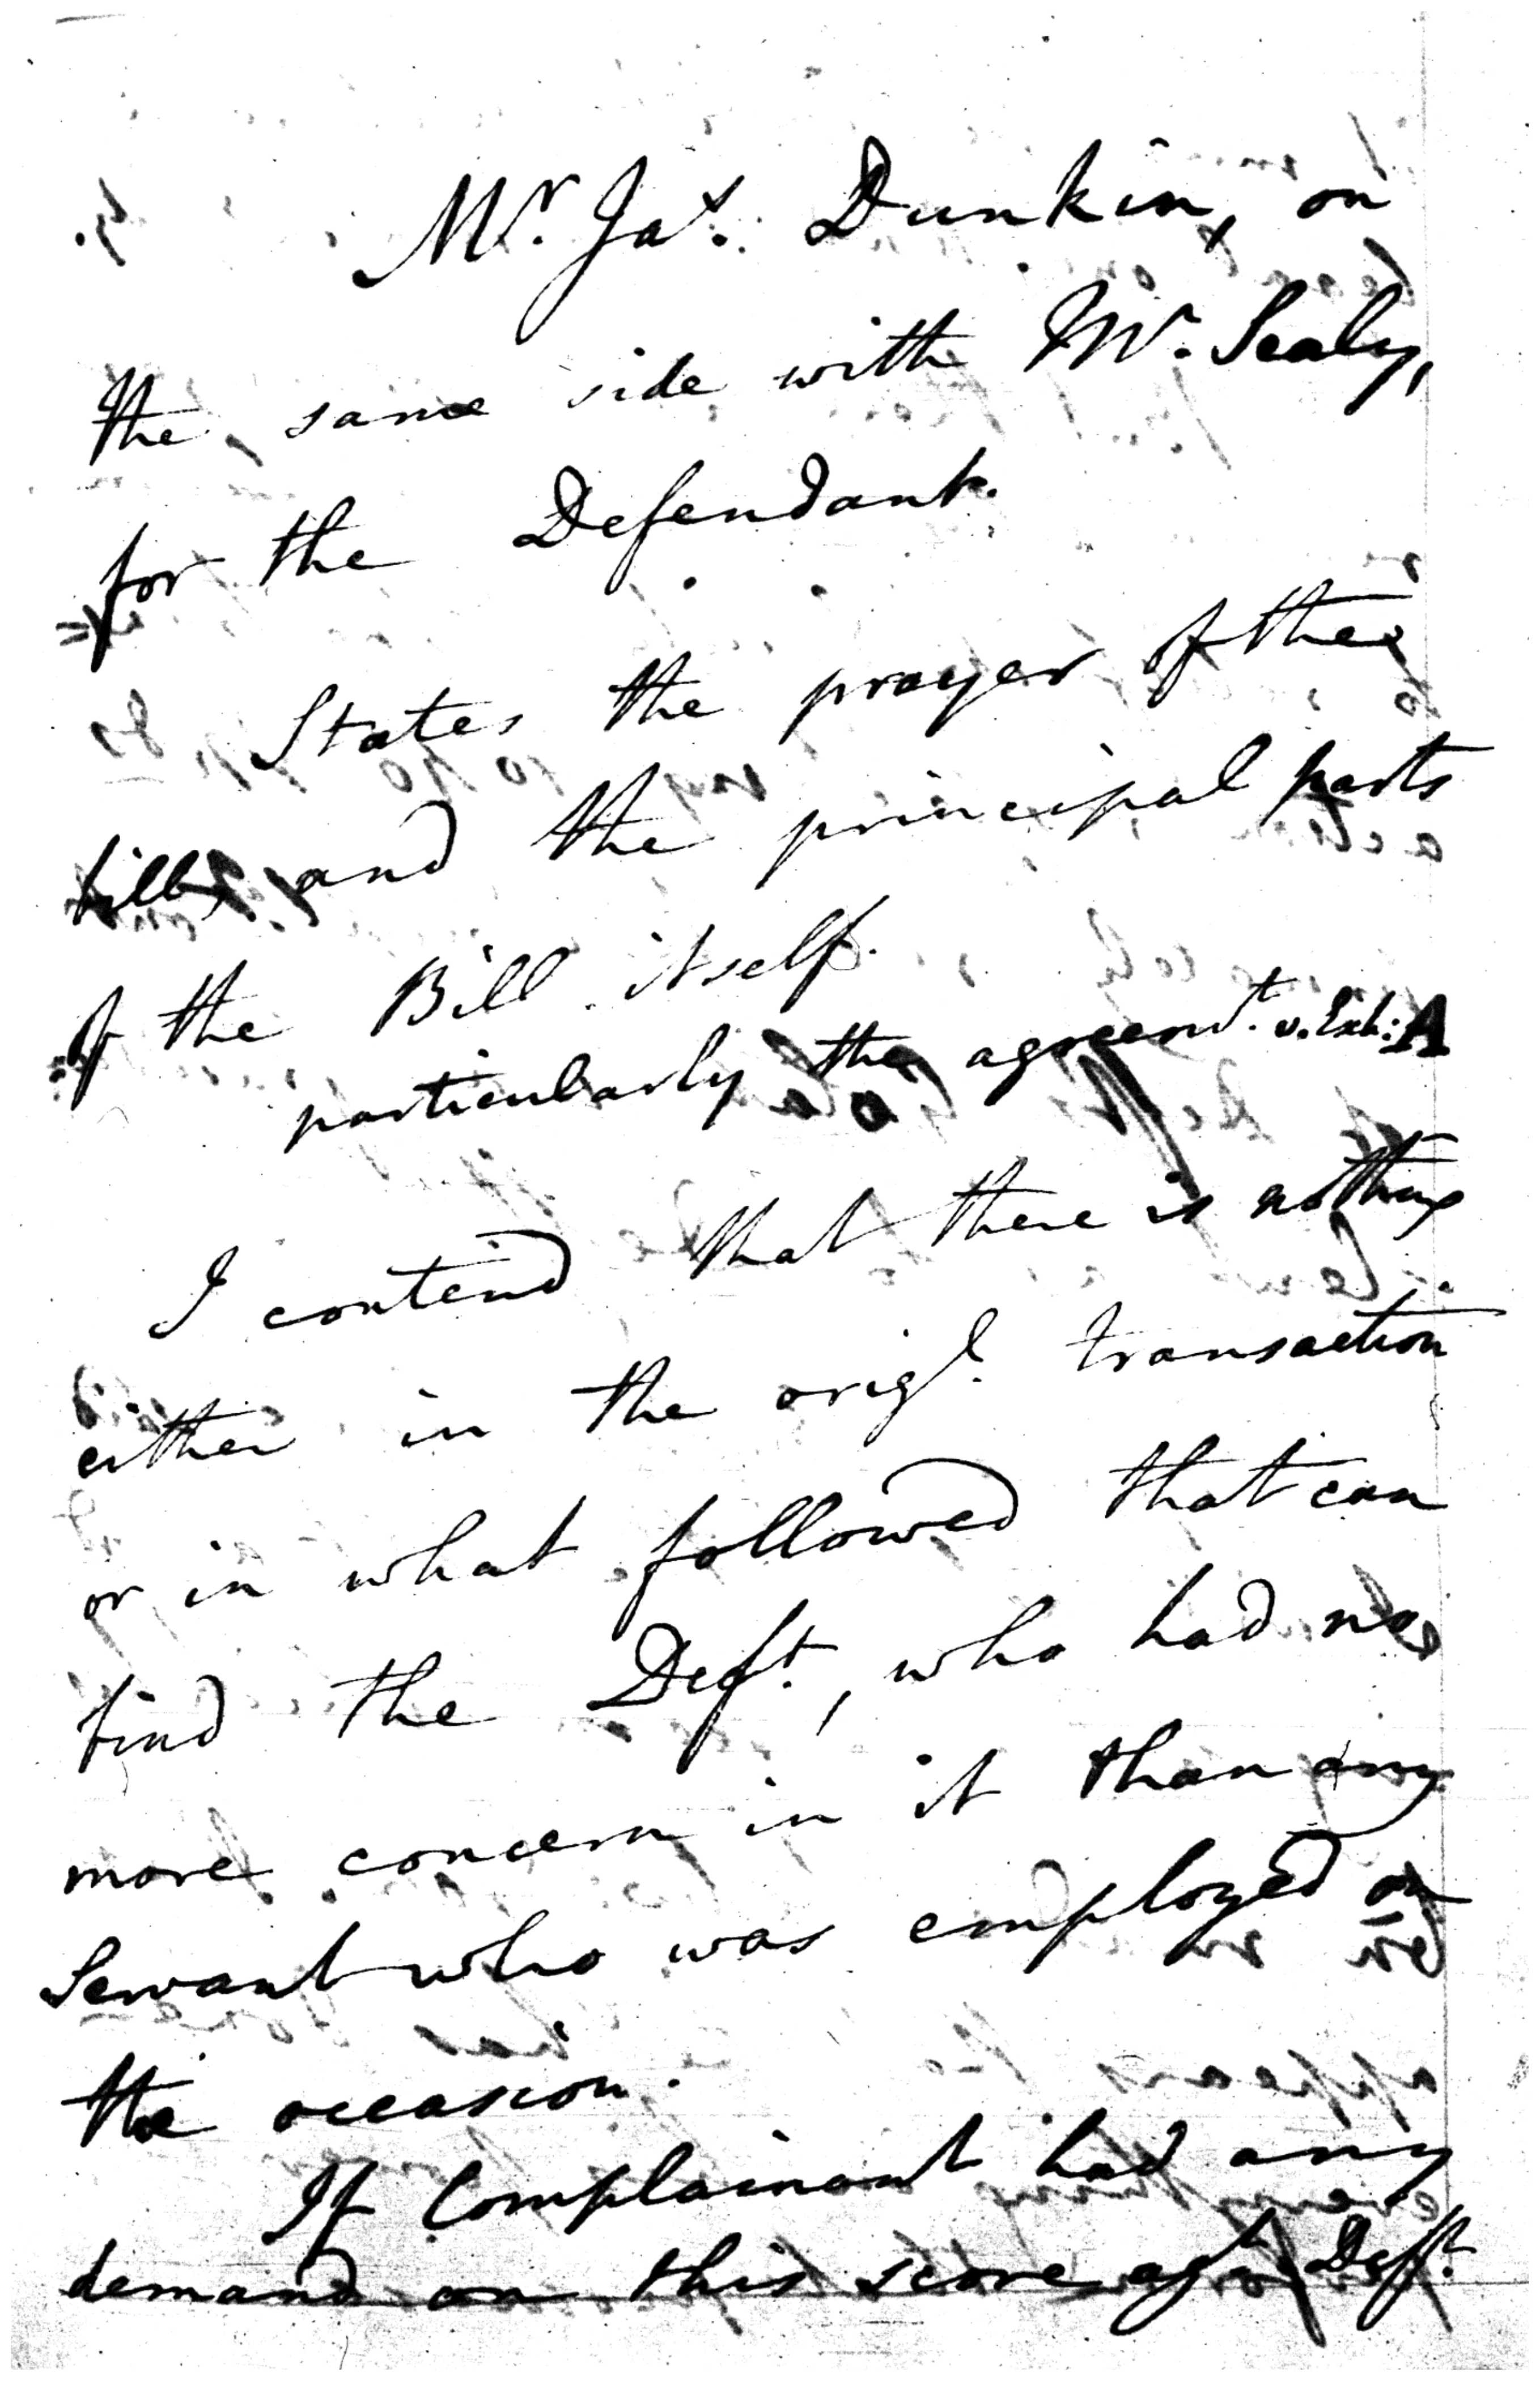 Mr. Jas. Dunkin, on
the same side with Mr. Sealy,
for the Defendant.
States the prayer of the
bill and the principal parts
of the Bill itself.
particularly the agreemt. v. Exh: A
I contend that there is nothing
either in the origl. transaction
or in what followed that can
bind the Deft., who had no
more concern in it than any
Servant who was employed on
the occasion.
If Complainant had any
demand on this score agt. Deft.